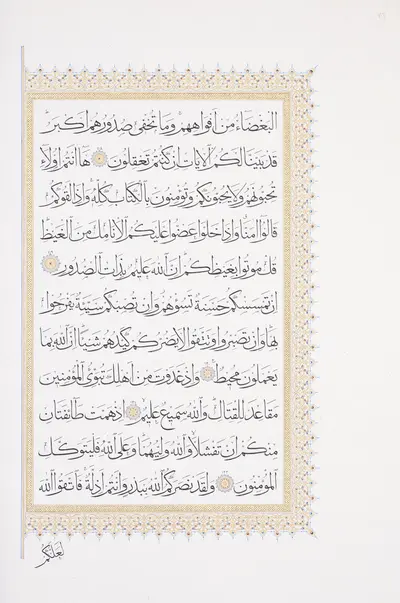 البغضاء من أفواههم وما تخفي صدورهم أكبر
قد بينا لكم الآيات إن كنتم تعقلون هاأنتم أولاء
تحبونهم ولا يحبونكم وتؤمنون بالكتاب كله وإذا لقوكم
قالوا آمنا وإذا خلوا عضوا عليكم الأنامل من الغيظ
قل موتوا بغيظكم إن الله عليم بذات الصدور
إن تمسسكم حسنة تسؤهم وإن تصبكم سيئة يفرحوا
بها وإن تصبروا وتتقوا لا يضركم كيدهم شيئا إن الله بما
يعملون محيط وإذ غدوت من أهلك تبوئ المؤمنين
مقاعد للقتال والله سميع عليم إذ همت طائفتان
منكم أن تفشلا والله وليهما وعلى الله فليتوكل
المؤمنون ولقد نصركم الله ببدر وأنتم أذلة فاتقوا الله
لعلكم